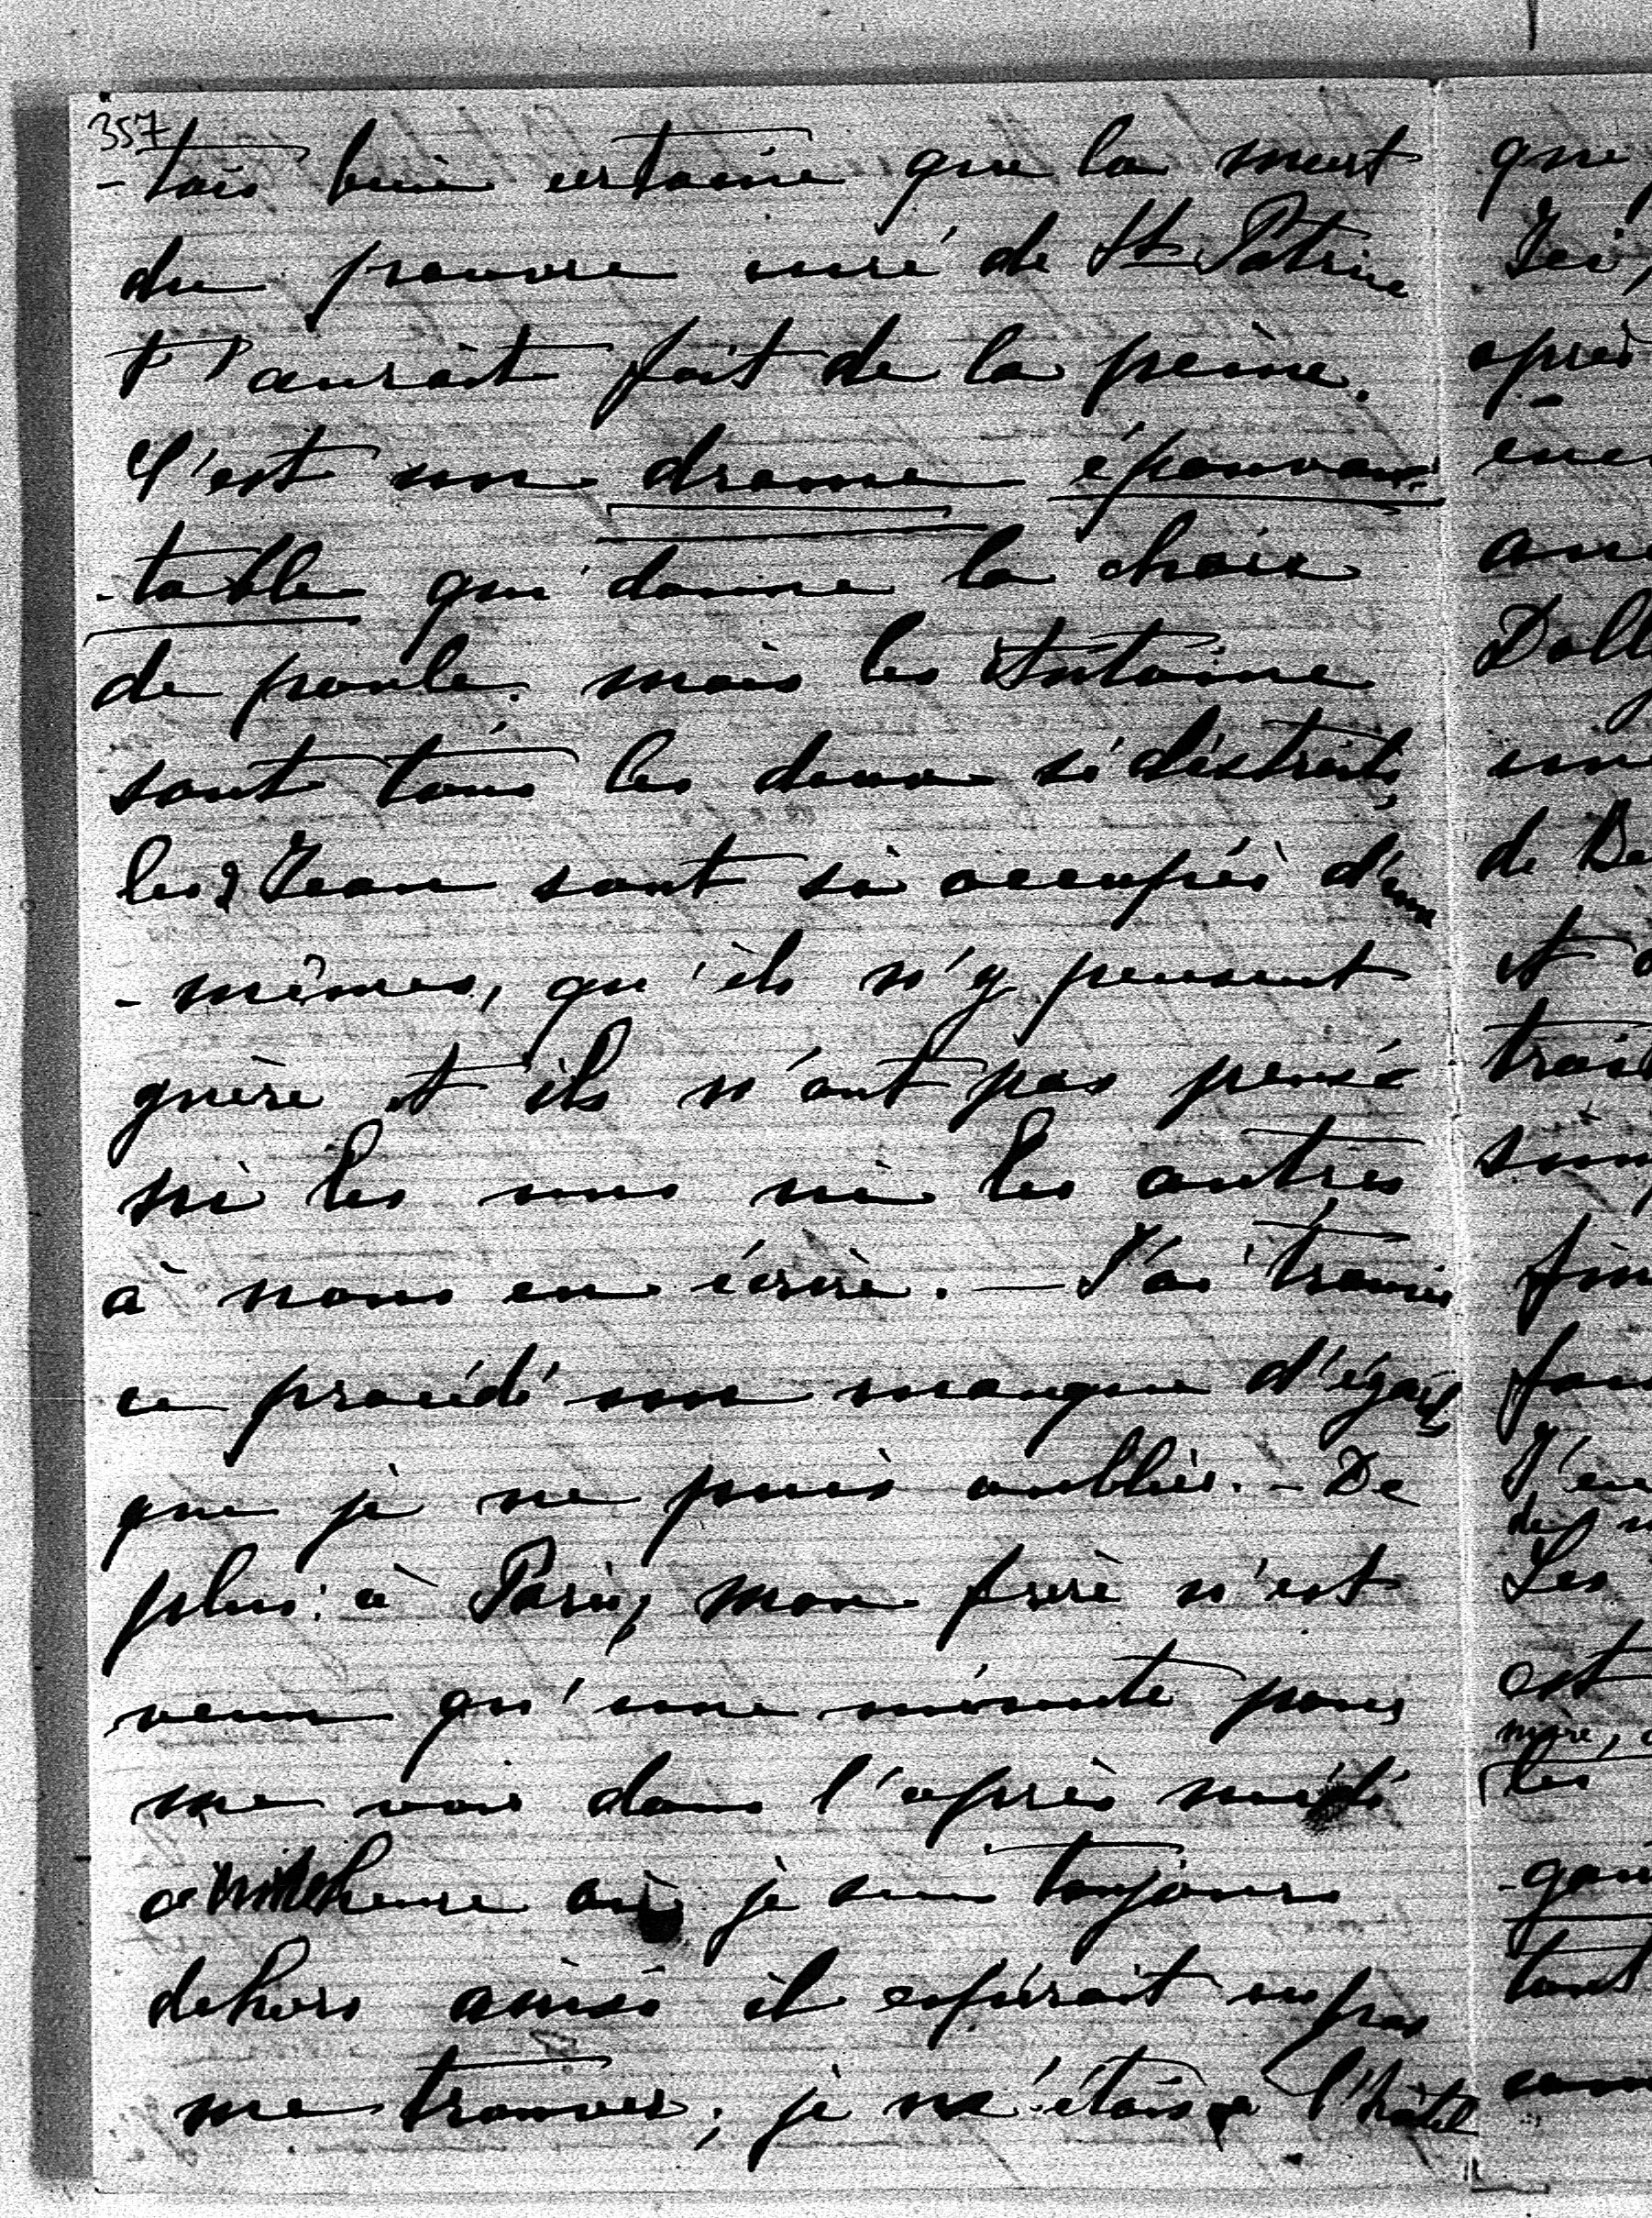 357
-tais bien certaine que la mort
du pauvre curé de St Patrice
t'aurait fait de la peine.
C'est un drame épouvan-
-table qui donne la chair
de poule. mais les Antoine
sont tous les deux si distraits,
les Jean sont si occupés d'eux
-mêmes, qu'ils n'y pensent
guère et ils n'ont pas pensé
ni les uns ni les autres
à nous en écrire. — J'ai trouvé
ce procédé un manque d'égards
que je ne puis oublier. - De
plus à Paris, mon frère n'est
venu qu'une minute pour
me voir dans l'après midi
à heure où je suis toujours
dehors ainsi il espérait ne pas
me trouver; je l'hôtel
que
Ici,
après
de
et
trois
Les
est
mère,